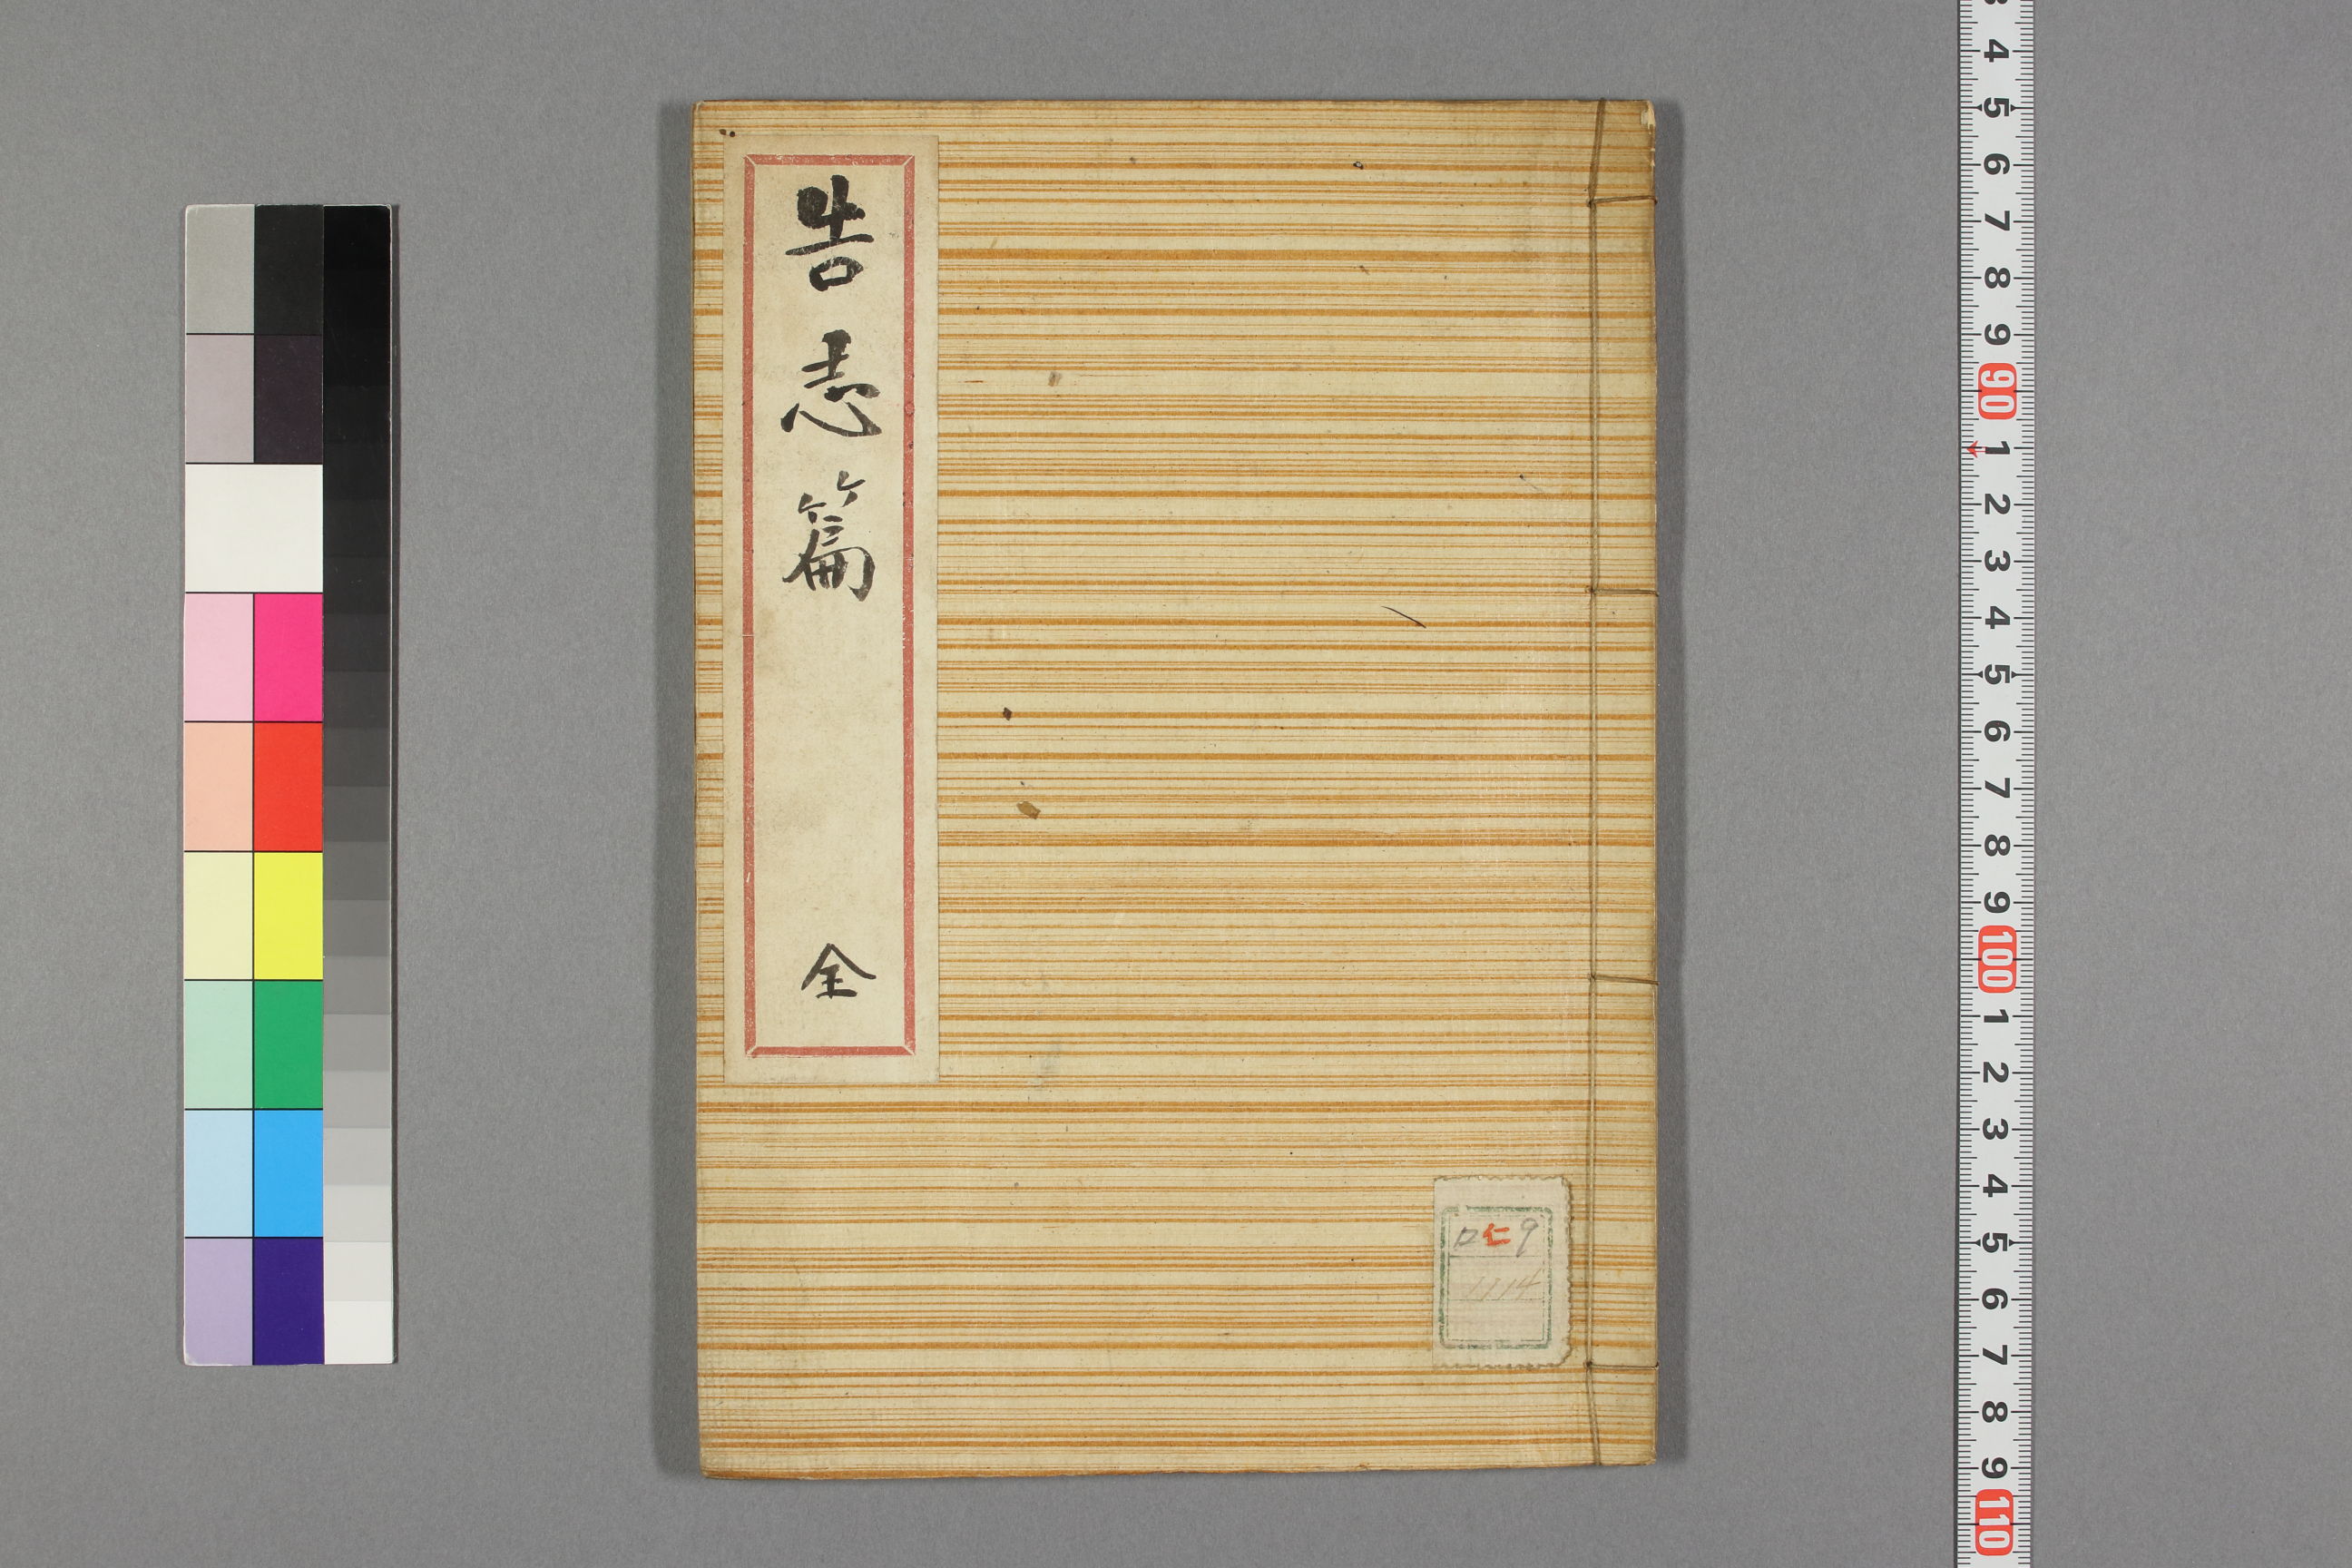 告志篇
全
ロ仁9
1114
3
4
5
6
7
8
9
90
1
2
3
4
5
6
7
8
9
100
1
2
3
4
5
6
7
8
9
110